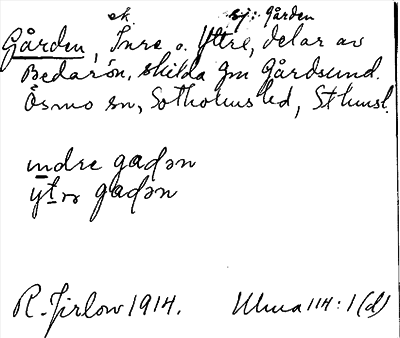 sk. sj: Gården
Gården, Inre o. Yttre, delar av
Bedarön, skilda gm Gårdsund.
Ösmo sn, Sotholms hd, Sthmsl.
indre gadən
ytrə gadən
R. Jirlow 1914. Ulma 114:1 (d)